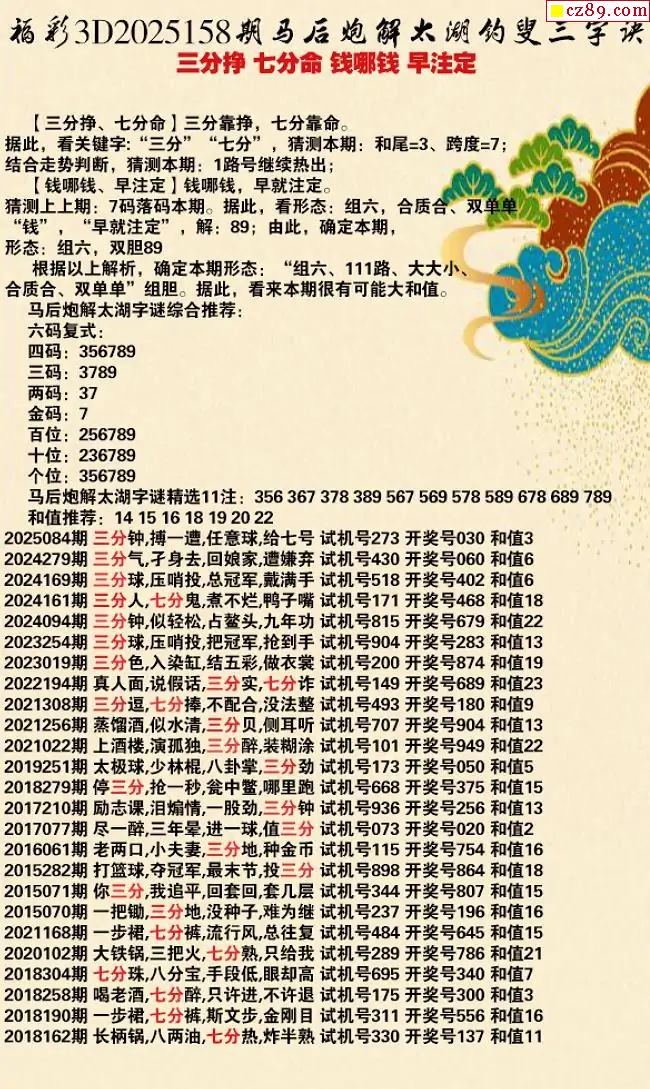 cz89.com
福彩3D2025158期马后炮解太湖钓叟三字诀
三分挣 七分命 钱哪钱 早注定
【三分挣、七分命】三分靠挣，七分靠命。
据此，看关键字:“三分”“七分”，猜测本期：和尾=3、跨度=7；
结合走势判断，猜测本期：1路号继续热出；
【钱哪钱、早注定】钱哪钱，早就注定。
猜测上上期：7码落码本期。据此，看形态：组六，合质合、双单单
“钱”，“早就注定”，解：89；由此，确定本期，
形态：组六，双胆89
根据以上解析，确定本期形态：“组六、111路、大大小、
合质合、双单单”组胆。据此，看来本期很有可能大和值。
马后炮解太湖字谜综合推荐：
六码复式：
四码：356789
三码：3789
两码：37
金码：7
百位：256789
十位：236789
个位：356789
马后炮解太湖字谜精选11注：356 367 378 389 567 569 578 589 678 689 789
和值推荐：14 15 16 18 19 20 22
2025084期 三分钟,搏一遭,任意球,给七号 试机号273 开奖号030 和值3
2024279期 三分气,孑身去,回娘家,遭嫌弃 试机号430 开奖号060 和值6
2024169期 三分球,压哨投,总冠军,戴满手 试机号518 开奖号402 和值6
2024161期 三分人,七分鬼,煮不烂,鸭子嘴 试机号171 开奖号468 和值18
2024094期 三分钟,似轻松,占鳌头,九年功 试机号815 开奖号679 和值22
2023254期 三分球,压哨投,把冠军,抢到手 试机号904 开奖号283 和值13
2023019期 三分色,入染缸,结五彩,做衣裳 试机号200 开奖号874 和值19
2022194期 真人面,说假话,三分实,七分诈 试机号149 开奖号689 和值23
2021308期 三分逗,七分捧,不配合,没法整 试机号493 开奖号180 和值9
2021256期 蒸馏酒,似水清,三分贝,侧耳听 试机号707 开奖号904 和值13
2021022期 上酒楼,演孤独,三分醉,装糊涂 试机号101 开奖号949 和值22
2019251期 太极球,少林棍,八卦掌,三分劲 试机号173 开奖号050 和值5
2018279期 停三分,抢一秒,瓮中鳖,哪里跑 试机号668 开奖号375 和值15
2017210期 励志课,泪煽情,一股劲,三分钟 试机号936 开奖号256 和值13
2017077期 尽一醉,三年晕,进一球,值三分 试机号073 开奖号020 和值2
2016061期 老两口,小夫妻,三分地,种金币 试机号115 开奖号754 和值16
2015282期 打篮球,夺冠军,最末节,投三分 试机号898 开奖号864 和值18
2015071期 你三分,我追平,回套回,套几层 试机号344 开奖号807 和值15
2015070期 一把锄,三分地,没种子,难为继 试机号237 开奖号196 和值16
2021168期 一步裙,七分裤,流行风,总往复 试机号484 开奖号645 和值15
2020102期 大铁锅,三把火,七分熟,只给我 试机号289 开奖号786 和值21
2018304期 七分珠,八分宝,手段低,眼却高 试机号695 开奖号340 和值7
2018258期 喝老酒,七分醉,只许进,不许退 试机号175 开奖号300 和值3
2018190期 一步裙,七分裤,斯文步,金刚目 试机号311 开奖号556 和值16
2018162期 长柄锅,八两油,七分热,炸半熟 试机号330 开奖号137 和值11